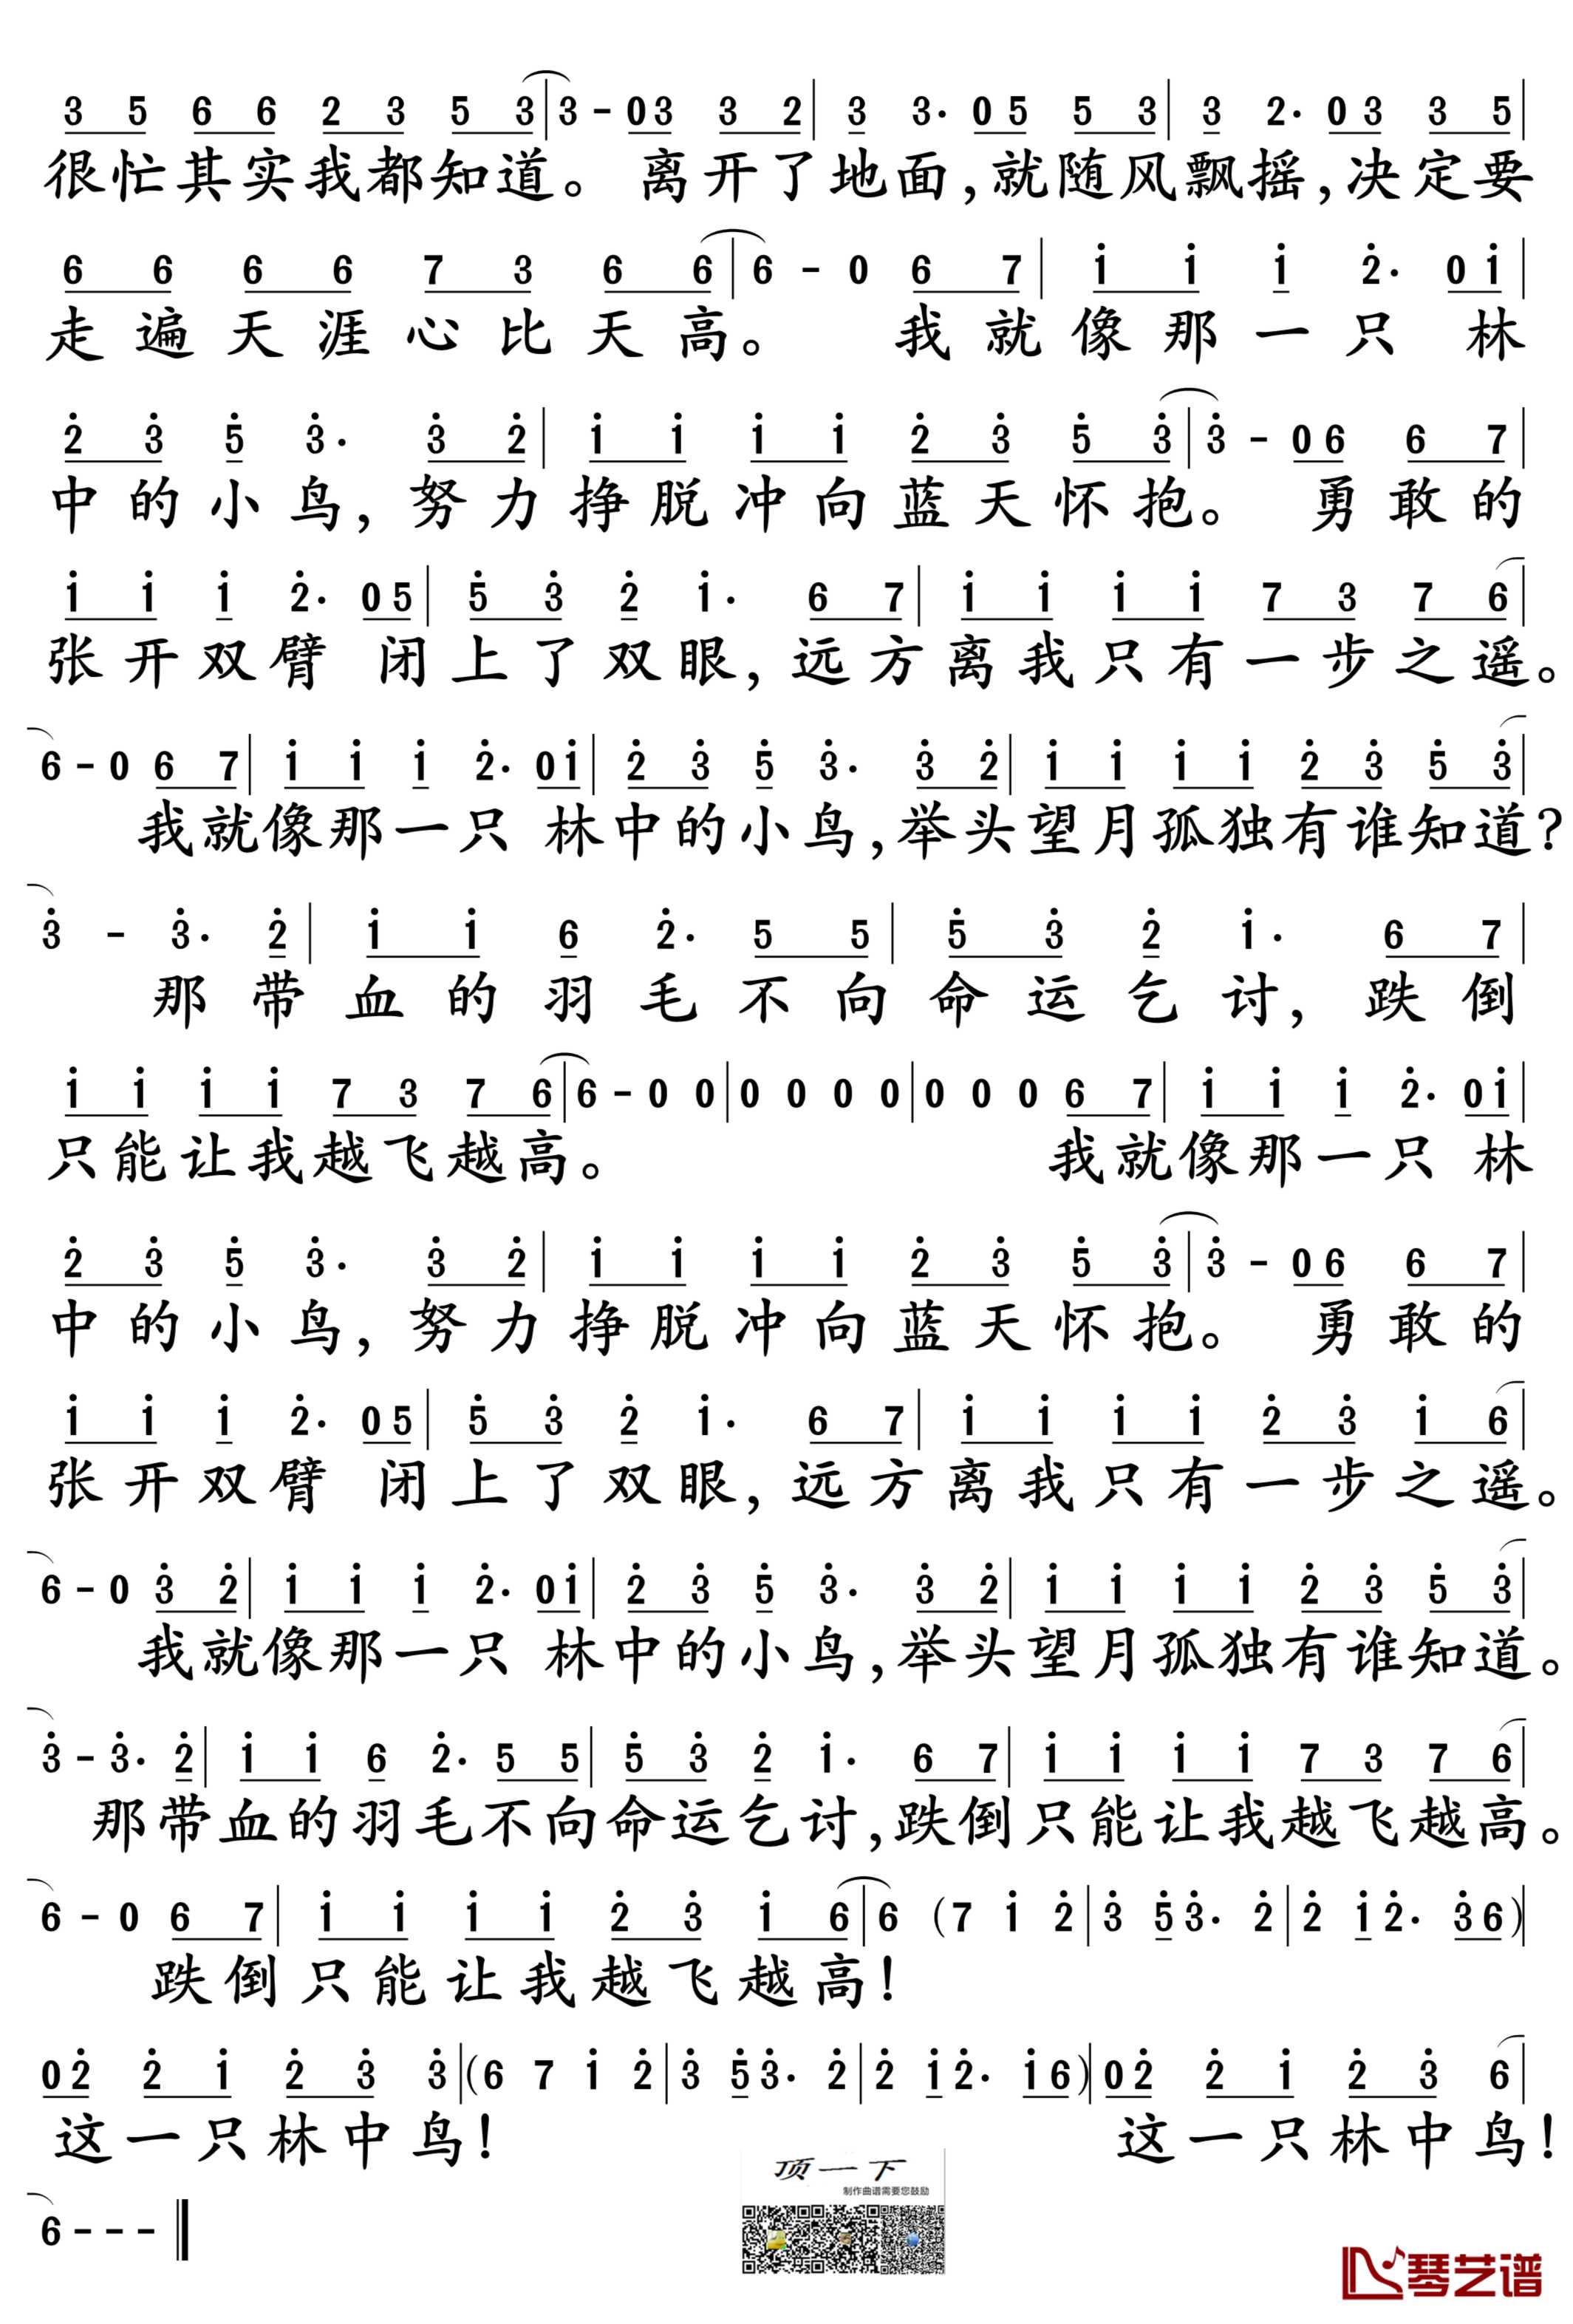 3 5 6 6 2 3 5 3|3 - 0 3 3 2|3 3· 0 5 5 3|3 2· 0 3 3 5|
很忙其实我都知道。 离开了地面,就随风飘摇,决定要
6 6 6 6 7 3 6 6|6 - 0 6 7|i i i 2̇· 0 i|
走遍天涯心比天高。 我就像那一只 林
2̇ 3̇ 5̇ 3̇· 3̇ 2̇|i i i i 2̇ 3̇ 5̇ 3̇|3̇ - 0 6 6 7|
中的小鸟,努力挣脱冲向蓝天怀抱。 勇敢的
i i i 2̇· 0 5|5̇ 3̇ 2̇ i· 6 7|i i i i 7 3 7 6|
张开双臂 闭上了双眼,远方离我只有一步之遥。
6 - 0 6 7|i i i 2̇· 0 i|2̇ 3̇ 5̇ 3̇· 3̇ 2̇|i i i i 2̇ 3̇ 5̇ 3̇|
我就像那一只 林中的小鸟,举头望月孤独有谁知道?
3̇ - 3̇· 2̇|i i 6 2̇· 5 5|5̇ 3̇ 2̇ i· 6 7|
那带血的羽毛不向命运乞讨,跌倒
i i i i 7 3 7 6|6 - 0 0|0 0 0 0|0 0 0 6 7|i i i 2̇· 0 i|
只能让我越飞越高。 我就像那一只 林
2̇ 3̇ 5̇ 3̇· 3̇ 2̇|i i i i 2̇ 3̇ 5̇ 3̇|3̇ - 0 6 6 7|
中的小鸟,努力挣脱冲向蓝天怀抱。 勇敢的
i i i 2̇· 0 5|5̇ 3̇ 2̇ i· 6 7|i i i i 2̇ 3̇ i 6|
张开双臂 闭上了双眼,远方离我只有一步之遥。
6 - 0 3̇ 2̇|i i i 2̇· 0 i|2̇ 3̇ 5̇ 3̇· 3̇ 2̇|i i i i 2̇ 3̇ 5̇ 3̇|
我就像那一只 林中的小鸟,举头望月孤独有谁知道。
3̇ - 3̇· 2̇|i i 6 2̇· 5 5|5̇ 3̇ 2̇ i· 6 7|i i i i 7 3 7 6|
那带血的羽毛不向命运乞讨,跌倒只能让我越飞越高。
6 - 0 6 7|i i i i 2̇ 3̇ i 6|6 (7 i 2̇|3̇ 5̇ 3̇· 2̇|2̇ i 2̇· 3̇ 6)|
跌倒只能让我越飞越高!
0 2̇ 2̇ i 2̇ 3̇ 3̇|(6 7 i 2̇|3̇ 5̇ 3̇· 2̇|2̇ i 2̇· i 6)|0 2̇ 2̇ i 2̇ 3̇ 6|
这一只林中鸟! 这一只林中鸟!
顶一下
制作曲谱需要您鼓励
6 - - - ‖
琴艺谱